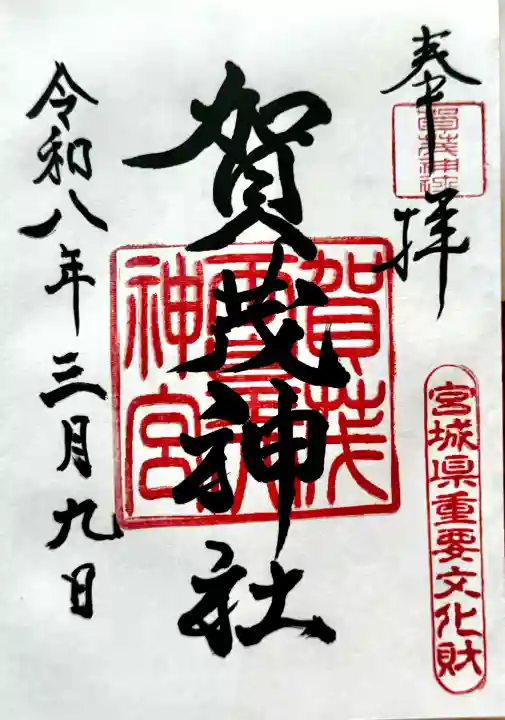 奉拝
賀茂神社
宮城県重要文化財
賀茂神社
賀茂
神宮
令和八年三月九日